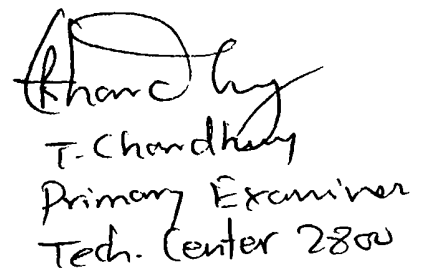 T. Chaudhury
Primary Examiner
Tech. Center 2800